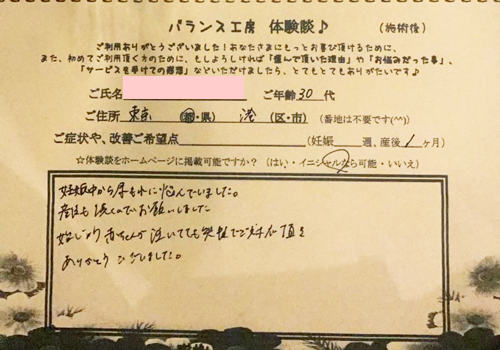 バランス工房 体験談♪ (施術後)
ご利用ありがとうございました!あなたさまにもっとお喜び頂けるために、
また、初めてご利用頂く方のために、もしよろしければ「選んで頂いた理由」や「お悩みだった事」、
「サービスを受けての感想」などいただけましたら、とてもとてもありがたいです♪
ご氏名 ご年齢 30 代
ご住所 東京 (都・県) 港 (区・市) (番地は不要です(^^))
ご症状や、改善ご希望点 (妊娠 週、産後 1 ヶ月)
☆体験談をホームページに掲載可能ですか? (はい・イニシャルなら可能・いいえ)
妊娠中から尿もれに悩んでいました。
産後も 続くのでお願いしました
赤ちゃんが 泣いてても 笑顔でご対応 頂き
ありがとうございました。